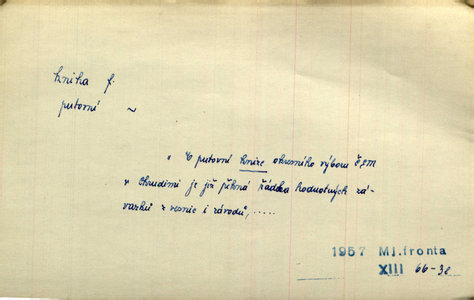 kniha f.
putovní ~
" V putovní knize okresního výboru ČSM
v Chrudimi je již pěkná řádka hodnotných zá-
vazků z vesnic i závodů, .....
1957 Ml.fronta
XIII 66-3c